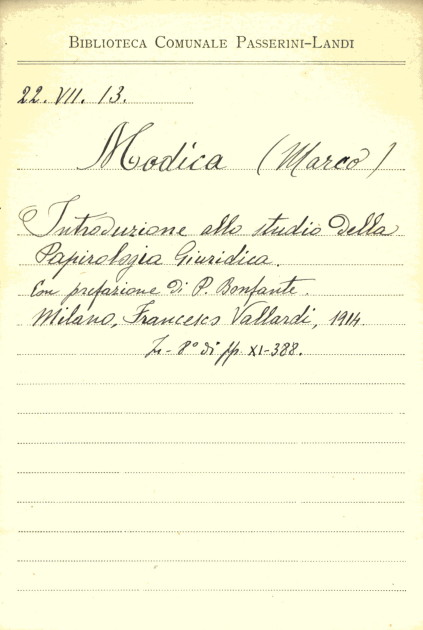 BIBLIOTECA COMUNALE PASSERINI-LANDI
22. VII. 13.
Modica (Marco)
Introduzione allo studio della
Papirologia Giuridica.
Con prefazione di P. Bonfante.
Milano, Francesco Vallardi, 1914
In-8° di pp. XI-388.